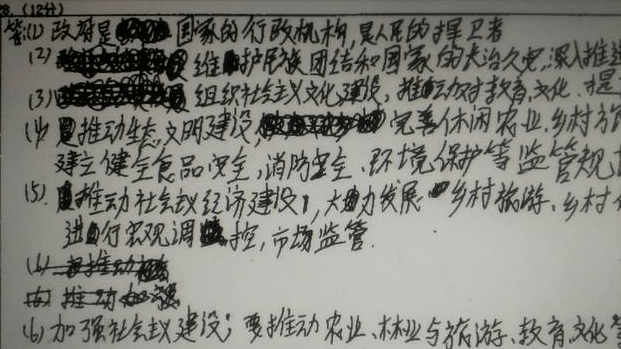 8. (12分)
答:(1) 政府是国家的行政机构,是人民的捍卫者
(2) 维护民族团结和国家的长治久安,深入推进
(3) 组织社会主义文化建设,推动对教育、文化、提
(4) 推动生态文明建设,完善休闲农业、乡村旅
建立健全食品安全,消防安全、环境保护等监管规
(5). 推动社会主义经济建设,大力发展乡村旅游、乡村
进行宏观调控,市场监管.
(6) 推动
推动加强
(6) 加强社会主义建设;要推动农业、林业与旅游、教育、文化等